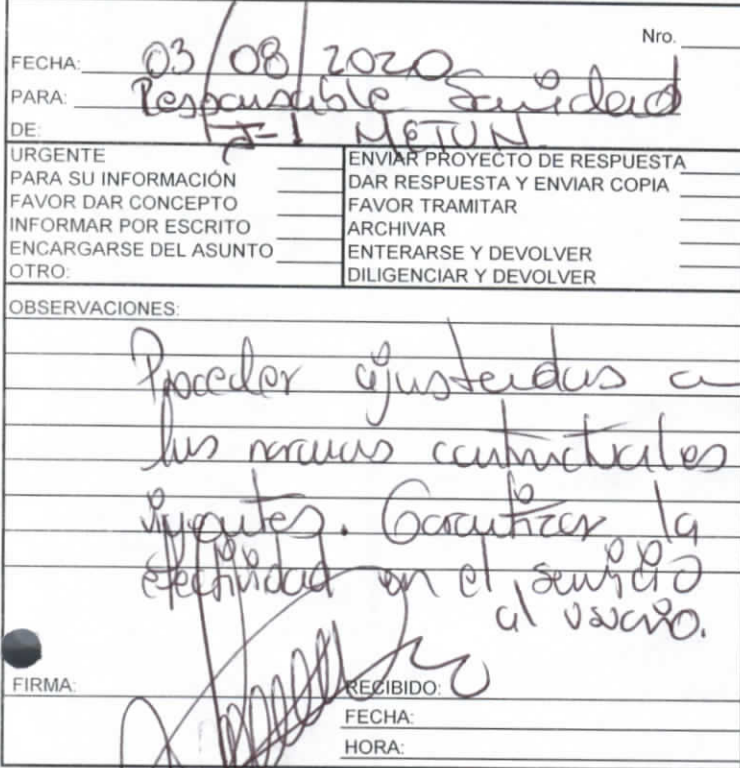 Nro.
FECHA: 03/08/2020
PARA: Responsable Sanidad
DE: J-1 METUN.
URGENTE
PARA SU INFORMACIÓN
FAVOR DAR CONCEPTO
INFORMAR POR ESCRITO
ENCARGARSE DEL ASUNTO
OTRO:
ENVIAR PROYECTO DE RESPUESTA
DAR RESPUESTA Y ENVIAR COPIA
FAVOR TRAMITAR
ARCHIVAR
ENTERARSE Y DEVOLVER
DILIGENCIAR Y DEVOLVER
OBSERVACIONES:
Proceder ajustados a
las normas contractuales
vigentes. Garantizar la
efectividad en el servicio
al usuario.
FIRMA:
RECIBIDO:
FECHA:
HORA: